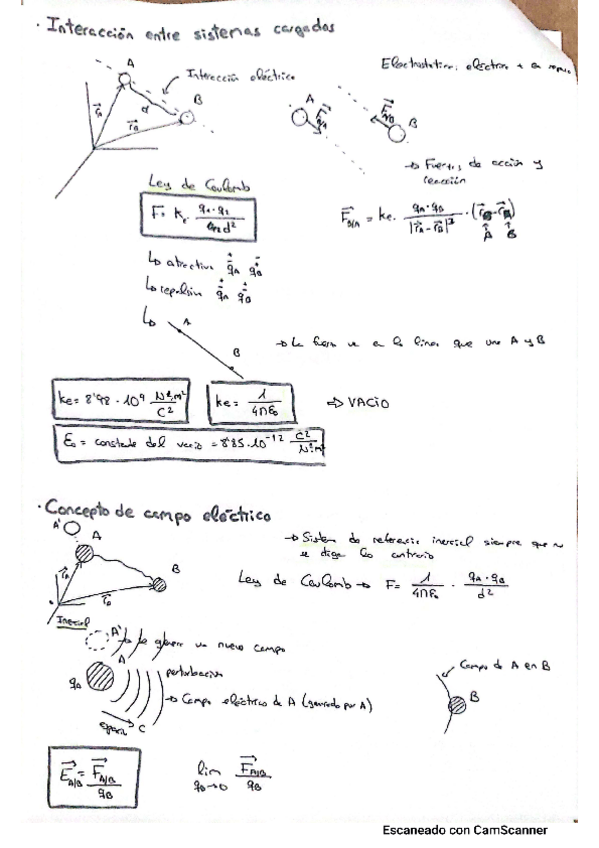 · Interacción entre sistemas cargados
Electrostática: eléctrico + en reposo
A
Interacción eléctrica
B
d
r_A
r_B
A
F_B/A
F_A/B
B
→ Fuerzas de acción y
reacción
Ley de Coulomb
F = k_e
d²
F_B/A = ke · q_A · q_B / |r_A - r_B|³
A B
↳ atractiva q_A q_B
↳ repulsiva q_A q_B
↳
A
B
→ La fuerza va en la línea que une A y B
ke = 8'98 · 10⁹ N·m² / C²
ke = 1 / 4πε₀
⇒ VACIO
ε₀ = constante del vacío = 8'85 · 10⁻¹² C² / N·m²
· Concepto de campo eléctrico
A'
A
B
r_A
r_B
Inercial
→ Sistema de referencia inercial siempre que no
se diga lo contrario
Ley de Coulomb → F = 1 / 4πε₀ · q_A · q_B / d²
A'
un nuevo campo
A
perturbación
→ Campo eléctrico de A (generado por A)
C
Campo de A en B
B
E_A/B = F_A/B / q_B
lim q_B→0 F_A/B / q_B
Escaneado con CamScanner